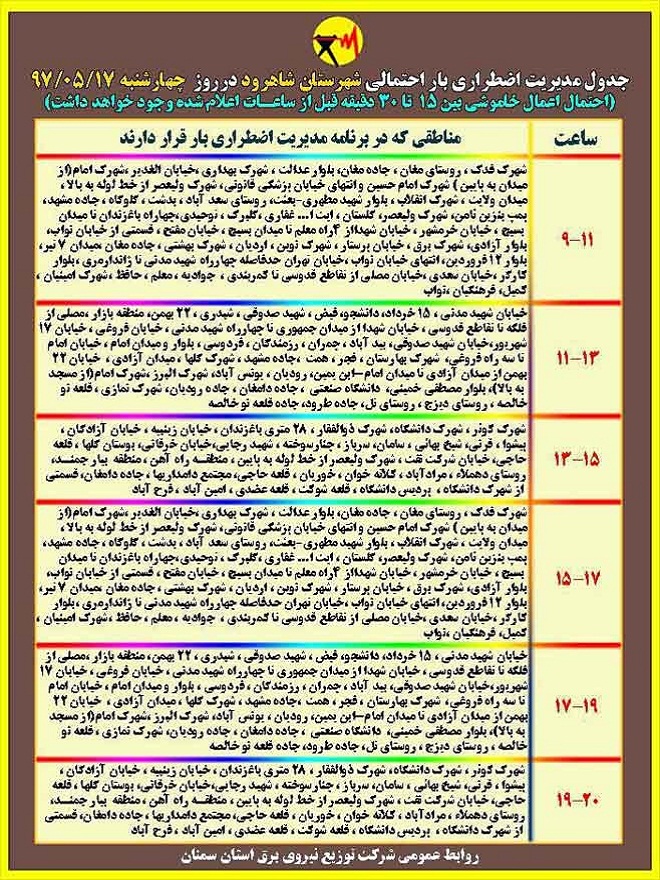 جدول مدیریت اضطراری بار احتمالی شهرستان شاهرود در روز چهارشنبه ۹۷/۰۵/۱۷
(احتمال اعمال خاموشی بین ۱۵ تا ۳۰ دقیقه قبل از ساعات اعلام شده وجود خواهد داشت)
ساعت
مناطقی که در برنامه مدیریت اضطراری بار قرار دارند
۹-۱۱
شهرک فدک ، روستای مغان ، جاده مغان، بلوار عدالت ، شهرک بهداری ،خیابان الغدیر،شهرک امام(از
میدان به پایین ) شهرک امام حسین و انتهای خیابان پزشکی قانونی، شهرک ولیعصر از خط لوله به بالا،
میدان ولایت ، شهرک انقلاب ، بلوار شهید مطهری-بعثت، روستای سعد آباد ، بدشت ، گلوگاه ، جاده مشهد،
پمپ بنزین ثامن، شهرک ولیعصر، گلستان ، آیت ا... غفاری ، گلبرگ ، توحیدی،چهارراه باغزندان تا میدان
بسیج ، خیابان خرمشهر ، خیابان شهدااز ۴راه معلم تا میدان بسیج ، خیابان مفتح ، قسمتی از خیابان نواب،
بلوار آزادی، شهرک برق ، خیابان پرستار ، شهرک نوین ، اردیان ، شهرک بهشتی ، جاده مغان ،میدان ۷ تیر،
بلوار ۱۲ فروردین، انتهای خیابان نواب ،خیابان تهران حدفاصله چهارراه شهید مدنی تا ژاندارمری ، بلوار
کارگر، خیابان سعدی ،خیابان مصلی از تقاطع قدوسی تا کمربندی ، جوادیه ، معلم ، حافظ ،شهرک امینیان ،
کمیل، فرهنگیان ،نواب
۱۱-۱۳
خیابان شهید مدنی ، ۱۵ خرداد، دانشجو، فیض ، شهید صدوقی ، شیدری ، ۲۲ بهمن، منطقه بازار ،مصلی از
فلکه تا تقاطع قدوسی ، خیابان شهدا از میدان جمهوری تا چهارراه شهید مدنی ، خیابان فروغی ، خیابان ۱۷
شهریور،خیابان شهید صدوقی، بید آباد ، چمران ، رزمندگان ، فردوسی ، بلوار و میدان امام ، خیابان امام
تا سه راه فروغی، شهرک بهارستان ، فجر ، همت ،جاده مشهد ، شهرک گلها ، میدان آزادی ، خیابان ۲۲
بهمن از میدان آزادی تا میدان امام-ابن یمین، رودیان ، یونس آباد، شهرک البرز ،شهرک امام((از مسجد
به بالا)، بلوار مصطفی خمینی، دانشگاه صنعتی ، جاده دامغان ، جاده رودیان، شهرک نمازی ، قلعه نو
خالصه ، روستای دیزج ، روستای تل، جاده طرود، جاده قلعه نو خالصه
۱۳-۱۵
شهرک کوثر ، شهرک دانشگاه، شهرک ذوالفقار ، ۲۸ متری باغزندان ، خیابان زینبیه ، خیابان آزادگان ،
پیشوا ، قرنی ، شیخ بهائی ، سامان، سرباز ، چنارسوخته ، شهید رجایی،خیابان خرقانی، بوستان گلها ، قلعه
حاجی، خیابان شرکت نفت ، شهرک ولیعصر از خط لوله به پایین ، منطقــه راه آهن ، منطقه بیار جمنـد،
روستای دهملاء ، مرادآباد ، کلاته خوان ، خوریان ، قلعه حاجی، مجتمع دامداریها ، جاده دامغان، قسمتی
از شهرک دانشگاه ، پردیس دانشگاه ، قلعه شوکت ، قلعه عضدی ، امین آباد ، فرح آباد
۱۵-۱۷
شهرک فدک ، روستای مغان ، جاده مغان، بلوار عدالت ، شهرک بهداری ،خیابان الغدیر،شهرک امام(از
میدان به پایین ) شهرک امام حسین و انتهای خیابان پزشکی قانونی، شهرک ولیعصر از خط لوله به بالا،
میدان ولایت ، شهرک انقلاب ، بلوار شهید مطهری-بعثت، روستای سعد آباد ، بدشت ، گلوگاه ، جاده مشهد،
پمپ بنزین ثامن، شهرک ولیعصر، گلستان ، آیت ا... غفاری ، گلبرگ ، توحیدی،چهارراه باغزندان تا میدان
بسیج ، خیابان خرمشهر ، خیابان شهدااز ۴راه معلم تا میدان بسیج ، خیابان مفتح ، قسمتی از خیابان نواب،
بلوار آزادی، شهرک برق ، خیابان پرستار ، شهرک نوین ، اردیان ، شهرک بهشتی ، جاده مغان ،میدان ۷ تیر،
بلوار ۱۲ فروردین، انتهای خیابان نواب ،خیابان تهران حدفاصله چهارراه شهید مدنی تا ژاندارمری ، بلوار
کارگر، خیابان سعدی ،خیابان مصلی از تقاطع قدوسی تا کمربندی ، جوادیه ، معلم ، حافظ ،شهرک امینیان ،
کمیل، فرهنگیان ،نواب
۱۷-۱۹
خیابان شهید مدنی ، ۱۵ خرداد، دانشجو، فیض ، شهید صدوقی ، شیدری ، ۲۲ بهمن، منطقه بازار ،مصلی از
فلکه تا تقاطع قدوسی ، خیابان شهدا از میدان جمهوری تا چهارراه شهید مدنی ، خیابان فروغی ، خیابان ۱۷
شهریور،خیابان شهید صدوقی، بید آباد ، چمران ، رزمندگان ، فردوسی ، بلوار و میدان امام ، خیابان امام
تا سه راه فروغی، شهرک بهارستان ، فجر ، همت ،جاده مشهد ، شهرک گلها ، میدان آزادی ، خیابان ۲۲
بهمن از میدان آزادی تا میدان امام-ابن یمین، رودیان ، یونس آباد، شهرک البرز ،شهرک امام((از مسجد
به بالا)، بلوار مصطفی خمینی، دانشگاه صنعتی ، جاده دامغان ، جاده رودیان، شهرک نمازی ، قلعه نو
خالصه ، روستای دیزج ، روستای تل، جاده طرود، جاده قلعه نو خالصه
۱۹-۲۰
شهرک کوثر ، شهرک دانشگاه، شهرک ذوالفقار ، ۲۸ متری باغزندان ، خیابان زینبیه ، خیابان آزادگان ،
پیشوا ، قرنی ، شیخ بهائی ، سامان، سرباز ، چنارسوخته ، شهید رجایی،خیابان خرقانی، بوستان گلها ، قلعه
حاجی، خیابان شرکت نفت ، شهرک ولیعصر از خط لوله به پایین ، منطقــه راه آهن ، منطقه بیار جمنـد،
روستای دهملاء ، مرادآباد ، کلاته خوان ، خوریان ، قلعه حاجی، مجتمع دامداریها ، جاده دامغان، قسمتی
از شهرک دانشگاه ، پردیس دانشگاه ، قلعه شوکت ، قلعه عضدی ، امین آباد ، فرح آباد
روابط عمومی شرکت توزیع نیروی برق استان سمنان